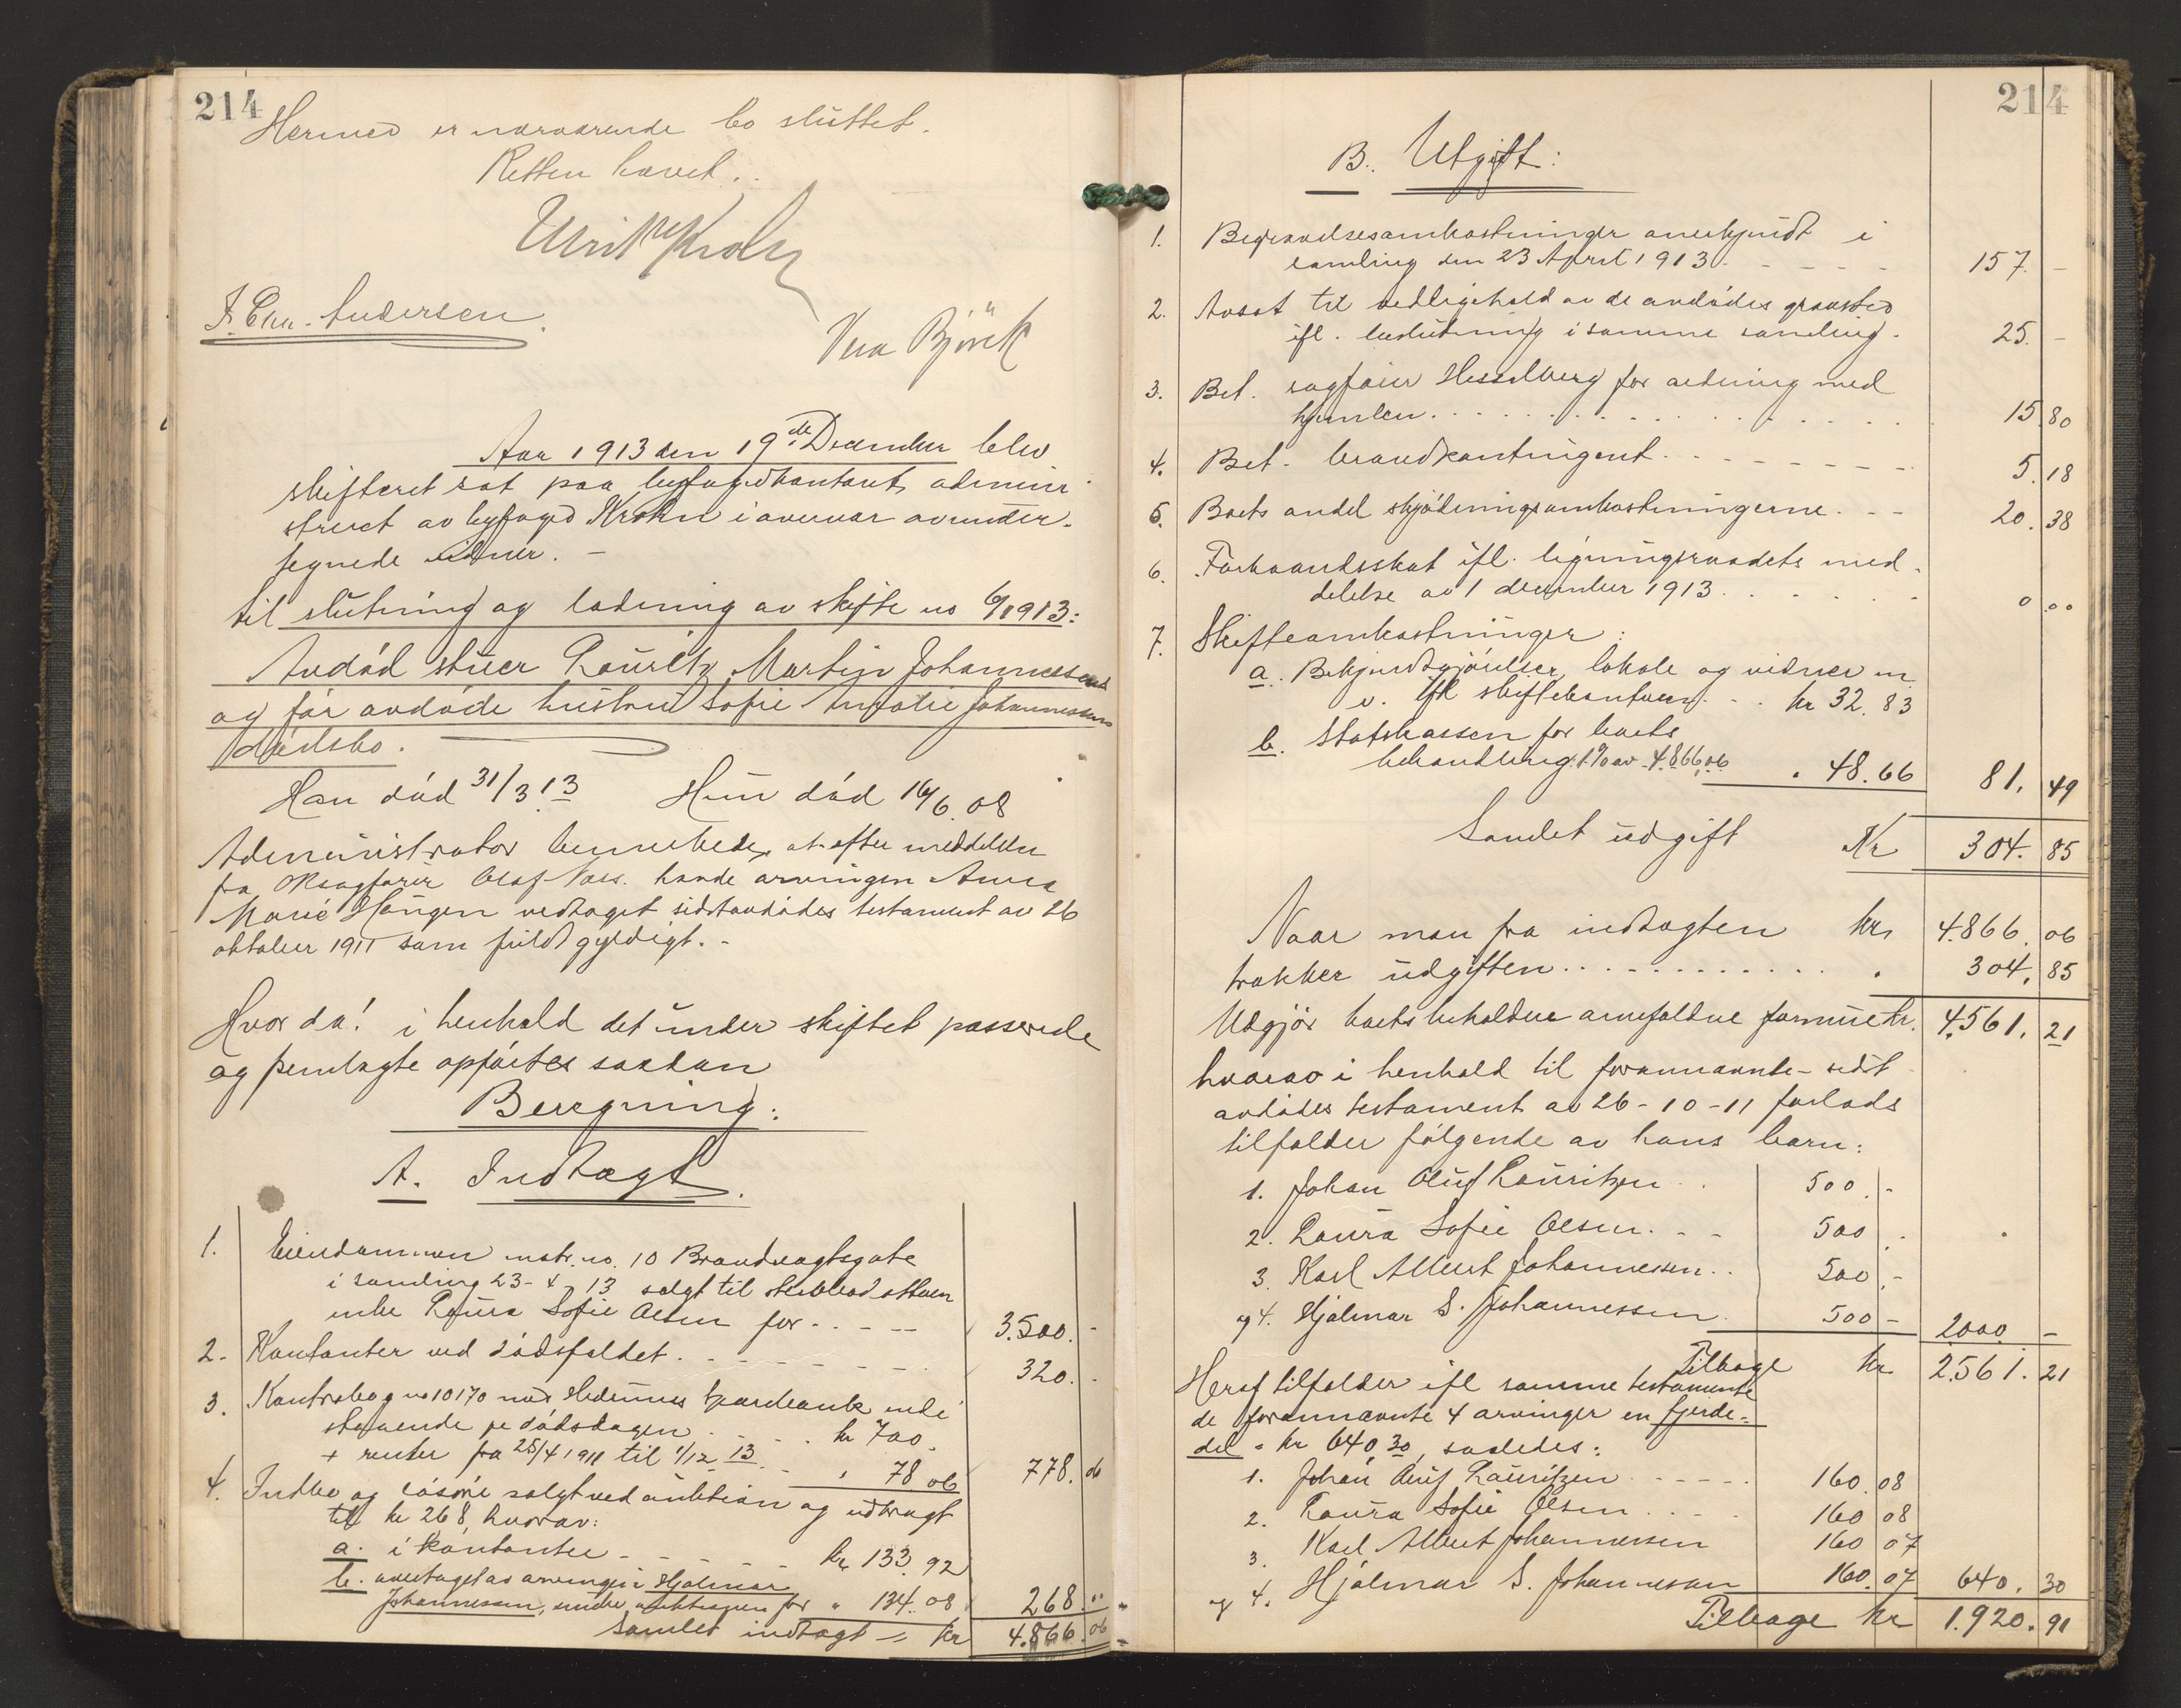 214
Hermed er nærværende bo sluttet.
Retten hævet.
Ulrik Krohn
F. Chr. Andersen.
Vera Björck
Aar 1913 den 19de December blev
skifteret sat paa byfogedkontoret, admini-
streret av byfoged Krohn i overvær av under-
tegnede vidner. –
til slutning og lodning av skifte no 6/1913:
Avdød stuer Lauritz Martin Johannessens
og før avdøde hustru Sofie Amalie Johannessens
dødsbo.
Han død 31/3 13 Hun død 16/6. 08
Administrator bemerkede, at efter meddelelse
fra Oksagfører Olaf Næss. havde arvingen Anna
Marie Haugen vedtaget sidstavdødes testament av 26
oktober 1911 som fuldt gyldigt. -
Hvorda! i henhold det under skiftet passerede
og fremlagte opførtes saadan
Beregning:
A. Indtægt.
1. Eiendommen matr. no. 10 Brandvagtsgate
i samling 23-4-13 solgt til sterbboets datteren
enke Laura Sofie Olsen for . . – – 3.500. -
2. Kontanter ved dødsfaldet. - - - - - - - 320. -
3. Kontrabog no 10170 med Hedemns sparebank inde-
staaende pr dødsdagen . . . . kr 700.
+ renter fra 25/4 1911 til 1/12 13 - - " 78.06 778. 06
4. Indbo og løsøre solgt ved auktion og udbragt
til kr 268, hvorav:
a. i kontanter - - - - - - kr 133. 92
b. overtaget av arvingen Hjalmar
Johannessen, under auktionen for " 134. 08 268. "
Samlet indtægt = kr 4.866. 06
214
B. Utgift:
1. Begravelsesomkostninger anerkjendt i
samling den 23 April 1913 - - - - - 157. –
2. Avsat til vedligehold av de avdødes gravsted
ifl. beslutning i samme samling. 25. –
3. Bet. sagfører Hesselberg for ordning med
hjemlen. . . . . . . . . . . . . 15. 80
4. Bet. brandkontingent. - - - - - - - 5. 18
5. Boets andel skjødningsomkostningerne. - - 20. 38
6. Forhaandsskat ifl. ligningsraadets med-
delelse av 1 december 1913 . . . . . . 0. 00
7. Skifteomkostninger:
a. Bekjendtgjørelser, lokale og vidner m
v. ifl skiftekontoen. . . kr 32. 83
b. Statskassen for boets
behandling: 1% av 4.866,06 " 48. 66 81. 49
Samlet udgift Kr 304. 85
Naar man fra indtægten kr. 4.866. 06
trækker udgiften . . . . . . . . . . . . " 304. 85
Udgjør boets beholdne arvefaldne formue kr. 4.561. 21
hvorav i henhold til forannævnte - sidst
avdødes testament av 26-10-11 forlods
tilfalder følgende av hans barn:
1. Johan Oluf Lauritzen . . 500. -
2. Laura Sofie Olsen. - - 500. -
3. Karl Albert Johannessen. . 500. -
og 4. Hjalmar S. Johannessen. 500 – 2000 –
Tilbage kr 2.561. 21
Heraf tilfalder ifl samme testamente
de forannævnte 4 arvinger en fjerde-
del = kr 640,30, saaledes:
1. Johan Oluf Lauritzen - - - - - 160. 08
2. Laura Sofie Olsen . . . . 160 08
3. Karl Albert Johannessen 160 07
og 4. Hjalmar S. Johannessen 160. 07 640. 30
Tilbage kr 1.920. 91